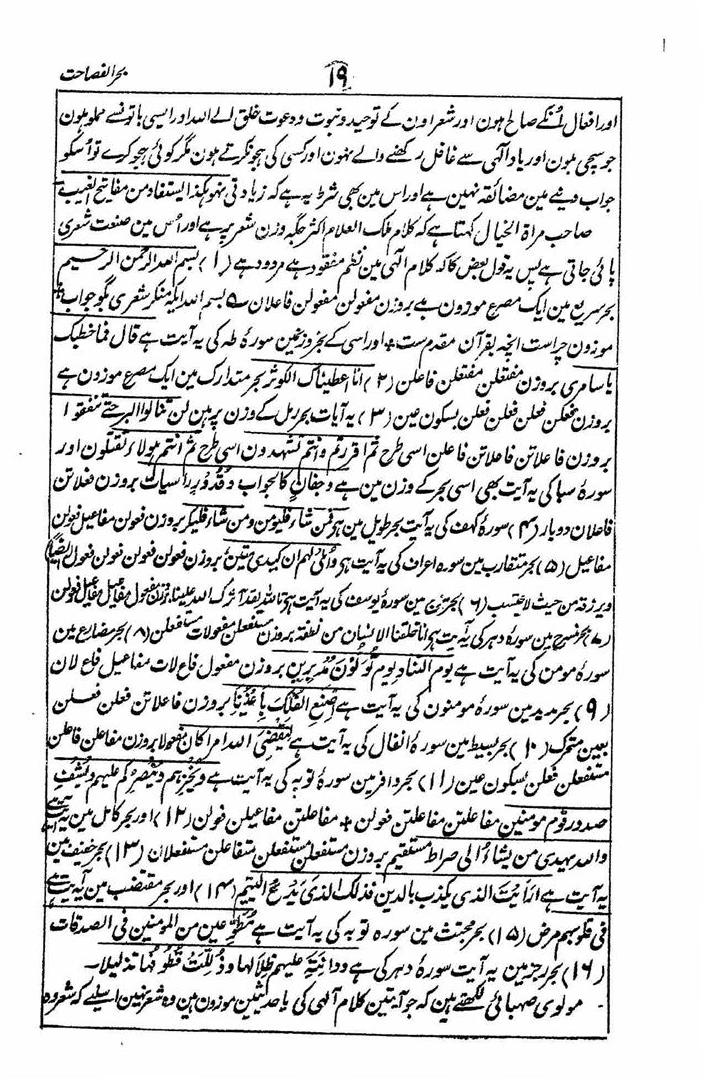 بحر الفصاحت
۱۹
اور افعال اُنکے صالح ہون اور شعر اون کے توحید و نبوت و دعوت خلق الے اللہ اور ایسی باتونسے مملو ہون
جو سچی ہون اور یاد آلہی سے غافل رکھنے والے نہون اور کسی کی ہجو نکرتے ہون مگر کوئی ہجو کرے تو اُسکو
جواب دینے مین مضائقہ نہین ہے اور اس مین بھی شرط یہ ہے کہ زیادتی نہو ہٰکذا یستفاد من مفاتیح الغیب
صاحب مراۃ الخیال کہتا ہے کہ کلام ملک العلام اکثر جگہ وزن شعر پر ہے اور اُس مین صنعت شعری
پائی جاتی ہے پس یہ قول بعض کا کہ کلام آلہی مین نظم مفقود ہے مردود ہے (۱) بسم اللہ الرحمن الرحیم
بحر سریع مین ایک مصرع موزون ہے بروزن مفعولن مفعولن فاعلان ؎ بسم اللہ اے کہ منکر شعری بگو جواب *
موزون چراست انچہ بقرآن مقدم ست * اور اسی کے بحر و زن مین سورۂ طہ کی یہ آیت ہے قال فما خطبک
یا سامری بروزن مفتعلن مفتعلن فاعلن (۲) انا اعطیناک الکوثر بحر متدارک مین ایک مصرع موزون ہے
بروزن فعلن فعلن فعلن فعلن بسکون عین (۳) یہ آیات بحر رمل کے وزن پر ہین لن تنالوا البر حتے تنفقوا
بروزن فاعلاتن فاعلاتن فاعلن اسی طرح ثم اقررتم وانتم تشہدون اسی طرح ثم انتم ہولاء تقتلون اور
سورۂ سبا کی یہ آیت بھی اسی بحر کے وزن مین ہے وجفانٍ کالجواب وقُدُورٍ راسیات بروزن فعلاتن
فاعلان دوبار (۴) سورۂ کہف کی یہ آیت بحر طویل مین ہے فمن شاء فلیؤمن ومن شاء فلیکفر بروزن فعولن مفاعیل فعولن
مفاعیل (۵) بحر متقارب مین سورہ اعراف کی یہ آیت ہے واُملی لہم ان کیدی متین بروزن فعولن فعولن فعولن فعول ایضاً
ویرزقہ من حیث لا یحتسب (۶) بحر ہزج مین سورۂ یوسف کی یہ آیت ہے تاللہ لقد آثرک اللہ علینا بروزن مفعول مفاعیل مفاعیل فعولن
(۷) بحر منسرح مین سورۂ دہر کی یہ آیت ہے انا خلقنا الانسان من نطفۃ بروزن مستفعلن مفعولات مستفعلن (۸) بحر مضارع مین
سورہ مومن کی یہ آیت ہے یوم التناد یوم تُولّون مُدبرین بروزن مفعول فاع لات مفاعیل فاع لان
(۹) بحر مدید مین سورۂ مومنون کی یہ آیت ہے اصنع الفلک باعیننا بروزن فاعلاتن فعلن فعلن
بعین متحرک (۱۰) بحر بسیط مین سورۂ انفال کی یہ آیت ہے لیقضی اللہ امرا کان مفعولا بروزن مفاعلن فاعلن
مستفعلن فعلن بسکون عین (۱۱) بحر وافر مین سورۂ توبہ کی یہ آیت ہے ویخزہم وینصرکم علیہم ویشف
صدور قوم مومنین مفاعلتن مفاعلتن فعولن + مفاعلتن مفاعیلن فعولن (۱۲) اور بحر کامل مین یہ آیت ہے
واللہ یہدی من یشاءُ الی صراط مستقیم بروزن مستفعلن مستفعلن متفاعلن مستفعلان (۱۳) بحر خفیف مین
یہ آیت ہے ارایت الذی یکذب بالدین فذلک الذی یدع الیتیم (۱۴) اور بحر مقتضب مین یہ آیت ہے
فی قلوبہم مرض (۱۵) بحر مجتث مین سورہ توبہ کی یہ آیت ہے مطوعین من المؤمنین فی الصدقات
(۱۶) بحر رجز مین یہ آیت سورۂ دہر کی ہے ودانیۃ علیہم ظلالہا وذللت قطوفہا تذلیلا۔
مولوی صہبائی لکھتے ہین کہ جو آیتین کلام آلہی کی یا حدیثین موزون ہین وہ شعر نہین اسلیے کہ شعر وہ